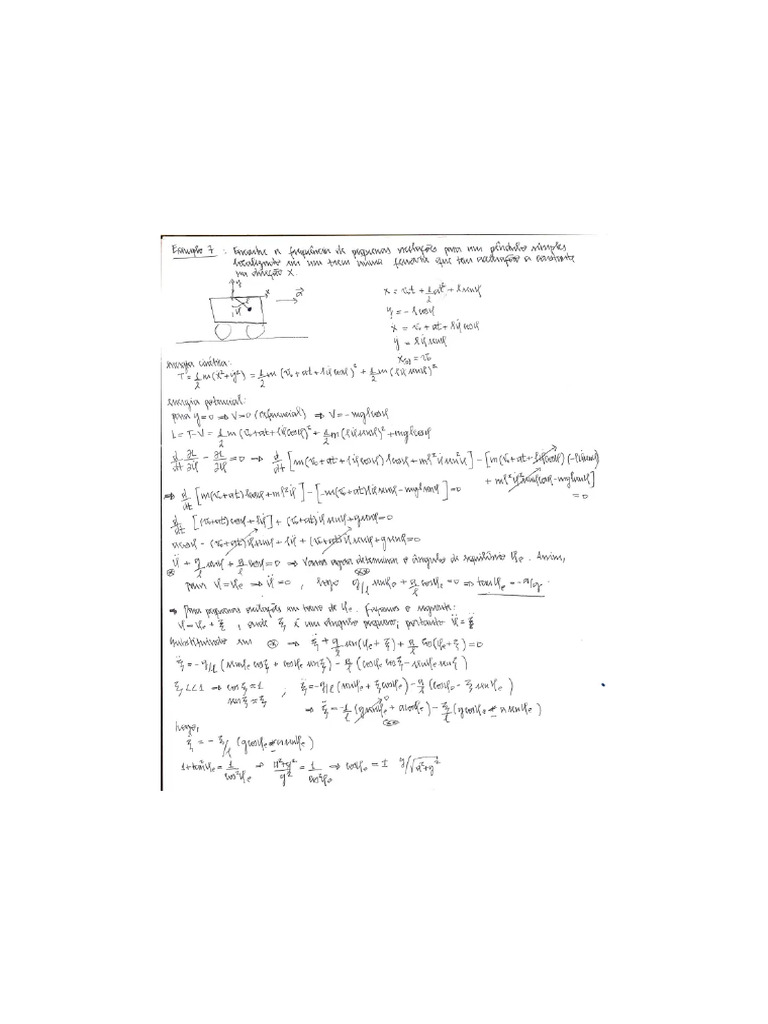 Exemplo 7 : Encontre a frequência de pequenas oscilações para um pêndulo simples
localizado em um trem numa ferrovia que tem aceleração a constante
na direção x.
y
x
a⃗
φ
l
x = v₀t + 1/2 at² + l senφ
y = -l cosφ
ẋ = v₀ + at + lφ̇ cosφ
ẏ = lφ̇ senφ
energia cinética:
T = 1/2 m(ẋ²+ẏ²) = 1/2 m (v₀ + at + lφ̇ cosφ)² + 1/2 m (lφ̇ senφ)²
energia potencial:
para y=0 ⇒ V=0 (referencial) ⇒ V = -mgl cosφ
L = T-V = 1/2 m (v₀+at+lφ̇ cosφ)² + 1/2 m (lφ̇ senφ)² + mgl cosφ
d/dt ∂L/∂φ̇ - ∂L/∂φ = 0 ⇒ d/dt [m(v₀+at+lφ̇ cosφ) l cosφ + ml²φ̇ sen²φ] - [m(v₀+at+lφ̇ cosφ)(-lφ̇ senφ)
+ ml²φ̇² senφ cosφ - mgl senφ]
= 0
⇒ d/dt [m(v₀+at) l cosφ + ml²φ̇] - [-m(v₀+at) lφ̇ senφ - mgl senφ] = 0
d/dt [(v₀+at) cosφ + lφ̇] + (v₀+at) φ̇ senφ + g senφ = 0
a cosφ - (v₀+at) φ̇ senφ + lφ̈ + (v₀+at) φ̇ senφ + g senφ = 0
φ̈ + g/l senφ + a/l cosφ = 0 ⇒ Vamos agora determinar o ângulo de equilíbrio φₑ. Assim,
para φ=φₑ ⇒ φ̈=0 , logo g/l senφₑ + a/l cosφₑ = 0 ⇒ tanφₑ = -a/g.
⇒ Para pequenas oscilações em torno de φₑ. Façamos o seguinte:
φ = φₑ + ξ , onde ξ é um ângulo pequeno, portanto φ̈ = ξ̈
substituindo em ⊛ ⇒ ξ̈ + g/l sen(φₑ+ξ) + a/l cos(φₑ+ξ) = 0
ξ̈ = -g/l (senφₑ cosξ + cosφₑ senξ) - a/l (cosφₑ cosξ - senφₑ senξ)
ξ<<1 ⇒ cosξ≈1 , ξ̈ = -g/l (senφₑ + ξ cosφₑ) - a/l (cosφₑ - ξ senφₑ)
senξ≈ξ
⇒ ξ̈ = -1/l (g senφₑ + a cosφₑ) - ξ/l (g cosφₑ - a senφₑ)
logo,
ξ̈ = -ξ/l (g cosφₑ - a senφₑ)
1+tan²φₑ = 1/cos²φₑ ⇒ (a²+g²)/g² = 1/cos²φₑ ⇒ cosφₑ = ± g/√(a²+g²)